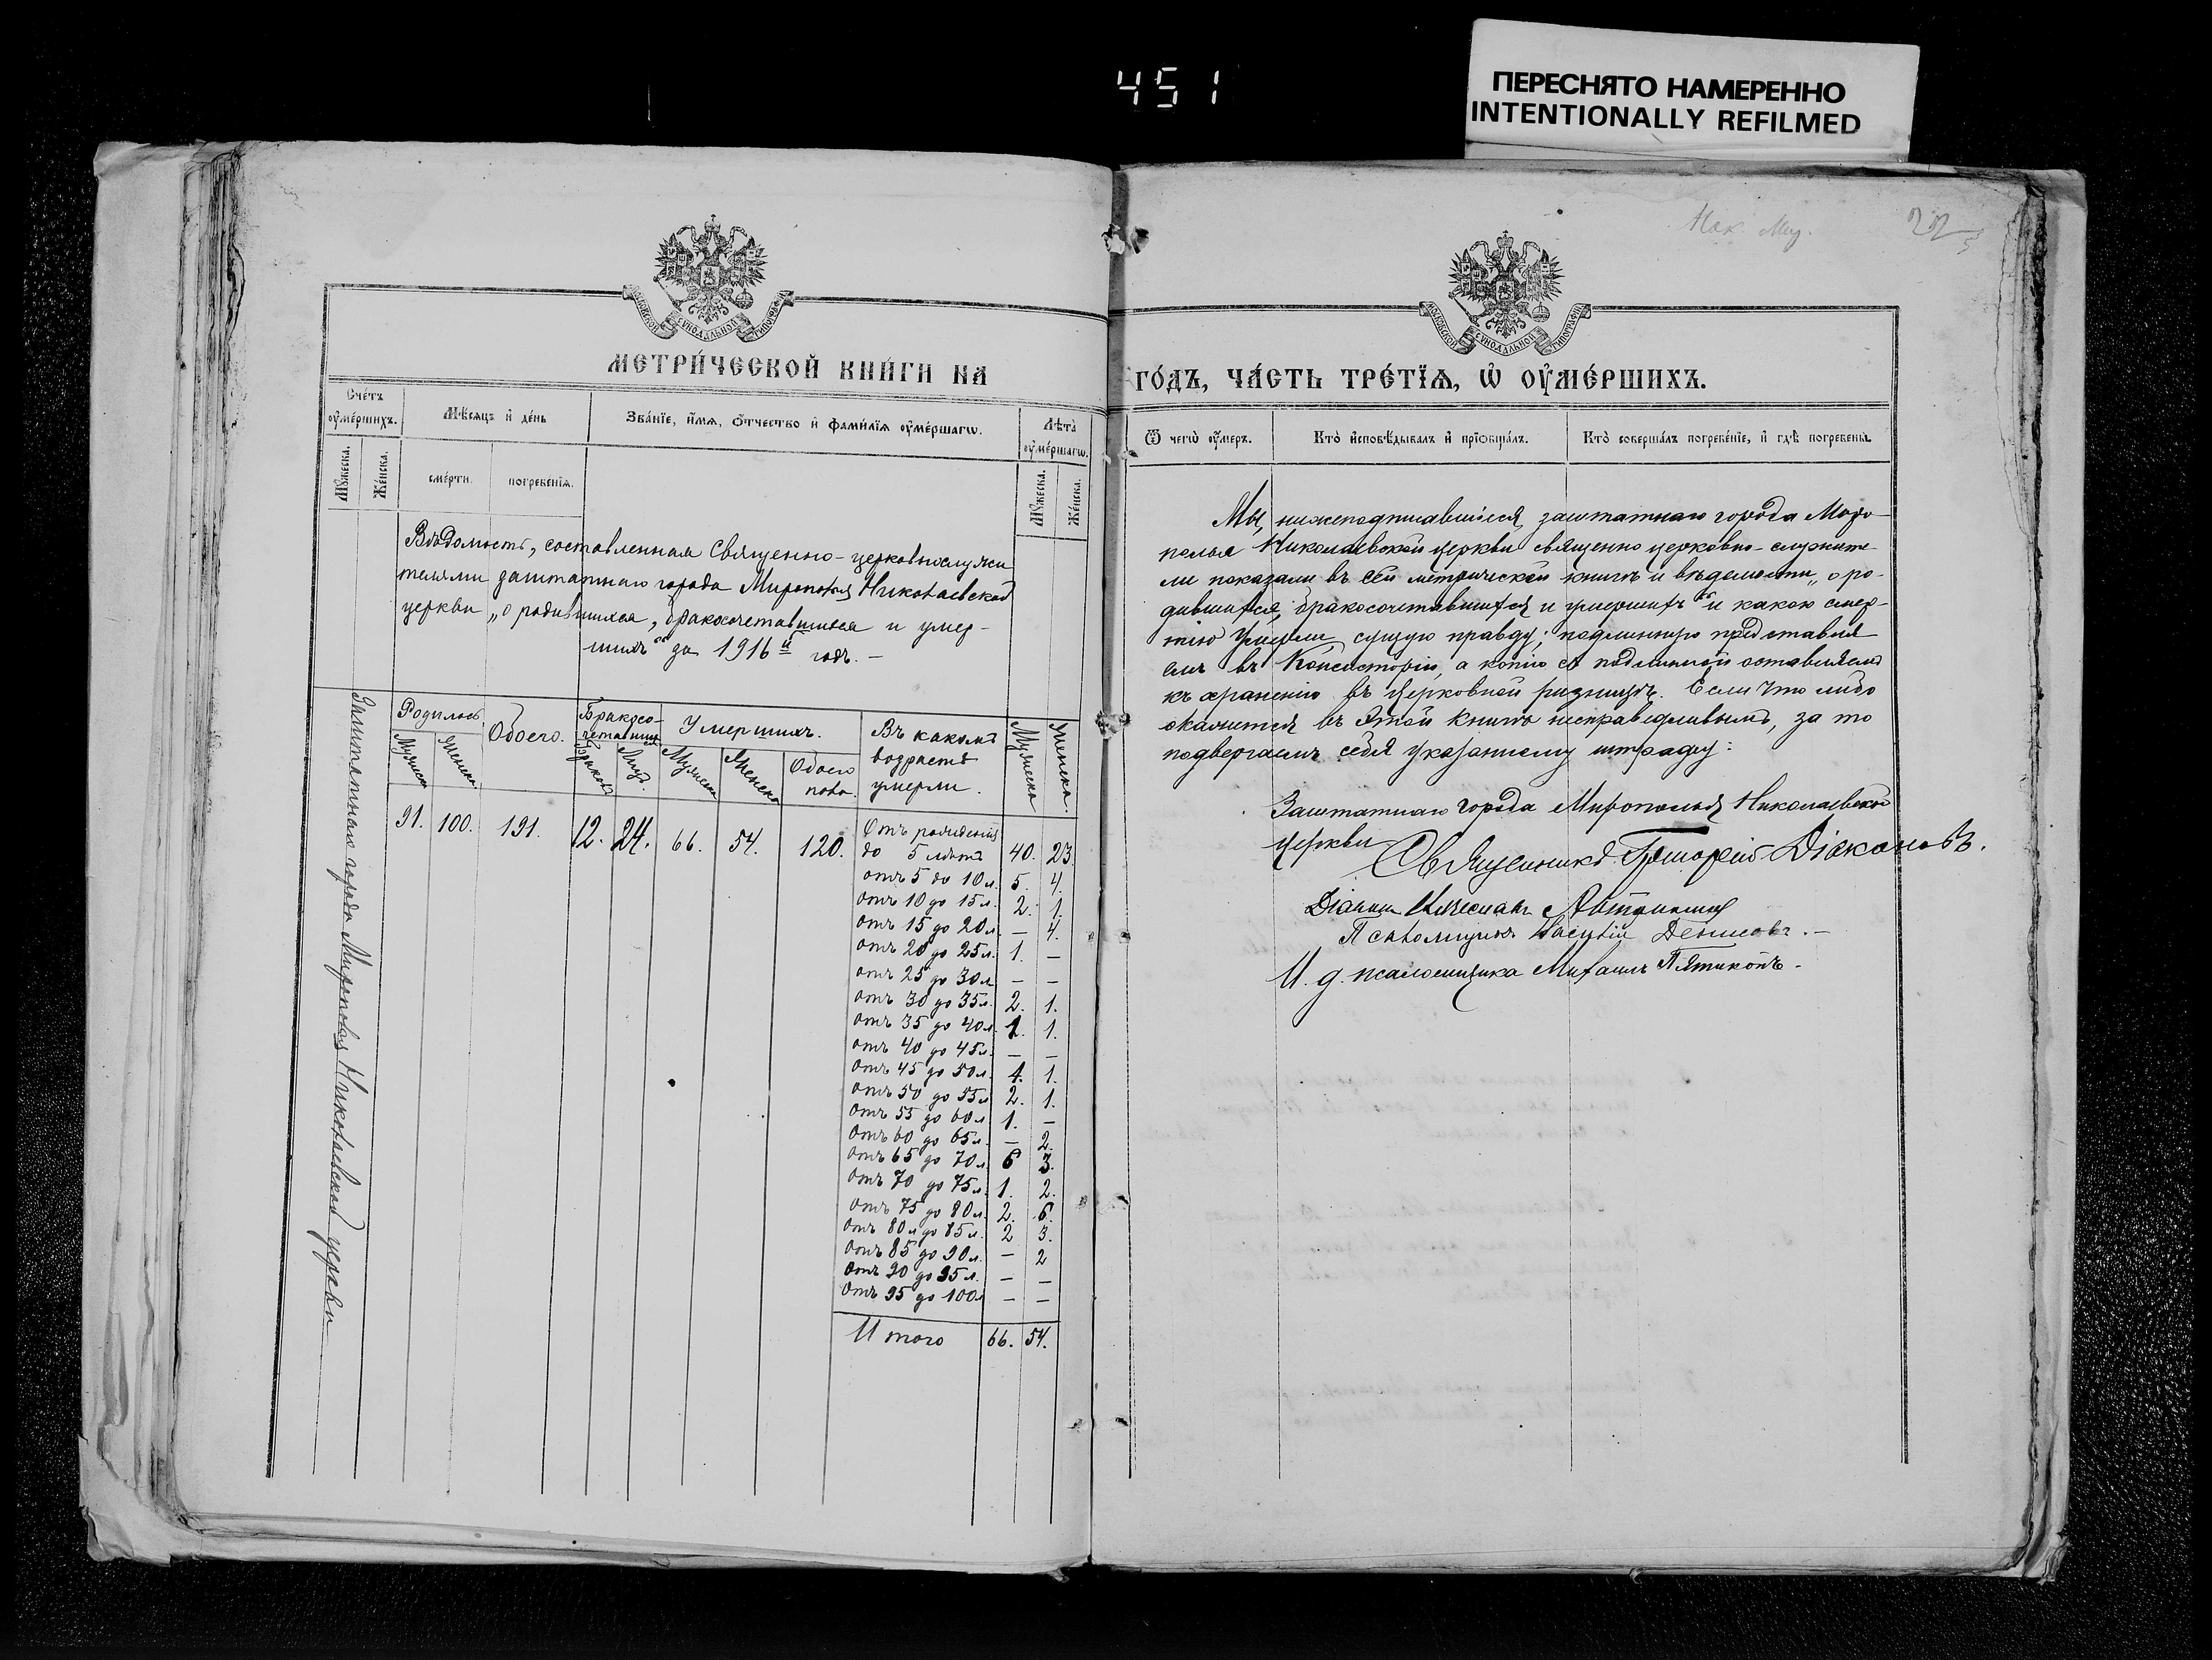 451
ПЕРЕСНЯТО НАМЕРЕННО
INTENTIONALLY REFILMED
МЕТРИ́ЧЕСКОЙ КНИ́ГИ НА
Сче́тъ ᲂу҆ме́ршихъ.
Мѣ́сяцъ и҆ де́нь
Зва́нїе, и҆́мѧ, ѻ҆́тчество и҆ фами́лїѧ ᲂу҆ме́ршагѡ.
Лѣ́та ᲂу҆ме́ршагѡ.
Мꙋ́жеска.
Же́нска.
сме́рти.
погребе́нїѧ.
Мꙋ́жеска.
Же́нска.
Вѣдомость, составленная Священно-церковнослужи
телями заштатнаго города Мирополья Николаевской
церкви „о родившихся, бракосочетавшихся и умер-
шихъ“ за 1916й годъ. —
Заштатнаго города Мирополья Николаевской церкви
Родилось
Обоего.
Бракосо-
четавших
Умершихъ.
Въ какомъ
возрастѣ
умерли.
Мужеска
Женска.
Мужеска
Женска.
Браковъ
Лицъ.
Мужеска
Женска
Обоего
пола.
91. 100. 191. 12. 24. 66. 54. 120.
Отъ рожденія
до 5 лѣтъ 40. 23
отъ 5 до 10 л. 5. 4.
отъ 10 до 15 л. 2. 1.
отъ 15 до 20 л. — 4.
отъ 20 до 25 л. 1. —
отъ 25 до 30 л — —
отъ 30 до 35 л. 2. 1.
отъ 35 до 40 л. 1. 1.
отъ 40 до 45 л. — —
отъ 45 до 50 л. 1. 1.
отъ 50 до 55 л 2. 1.
отъ 55 до 60 л 1. —
отъ 60 до 65 л. — 2.
отъ 65 до 70 л. 6 3.
отъ 70 до 75 л. 1. 2.
отъ 75 до 80 л. 2. 6.
отъ 80 л до 85 л. 2 3.
отъ 85 до 90 л. — 2
отъ 90 до 95 л. — —
отъ 95 до 100 л — —
Итого 66. 54.
22
ГО́ДЪ, ЧА́СТЬ ТРЕ́ТЇѦ, Ѡ҆ ᲂУ҆МЕ́РШИХЪ.
Ѿ чегѡ̀ ᲂу҆́меръ.
Кто̀ и҆сповѣ́дывалъ и҆ прїѡбща́лъ.
Кто̀ соверша́лъ погребе́нїе, и҆ гдѣ̀ погребены̀.
Мы, нижеподписавшіеся, заштатнаго города Миро-
полья Николаевской церкви священно церковно-служите-
ли показали въ сей метрической книгѣ и вѣдомости „о ро-
дившихся, бракосочетавшихся и умершихъ“ и какою смер-
тію умерли, сущую правду; подлинную представля
емъ въ Консисторію, а копію съ подлинной оставляемъ
къ храненію въ церковной ризницѣ. Если что либо
окажется въ этой книгѣ несправедливымъ, за то
подвергаемъ себя указанному штрафу:
Заштатнаго города Мирополья Николаевской
церкви
Священникъ Григорій Діаконовъ.
Діаконъ
Псаломщикъ Василій Денисовъ. —
И. д. псаломщика Михаилъ Пятикопъ.